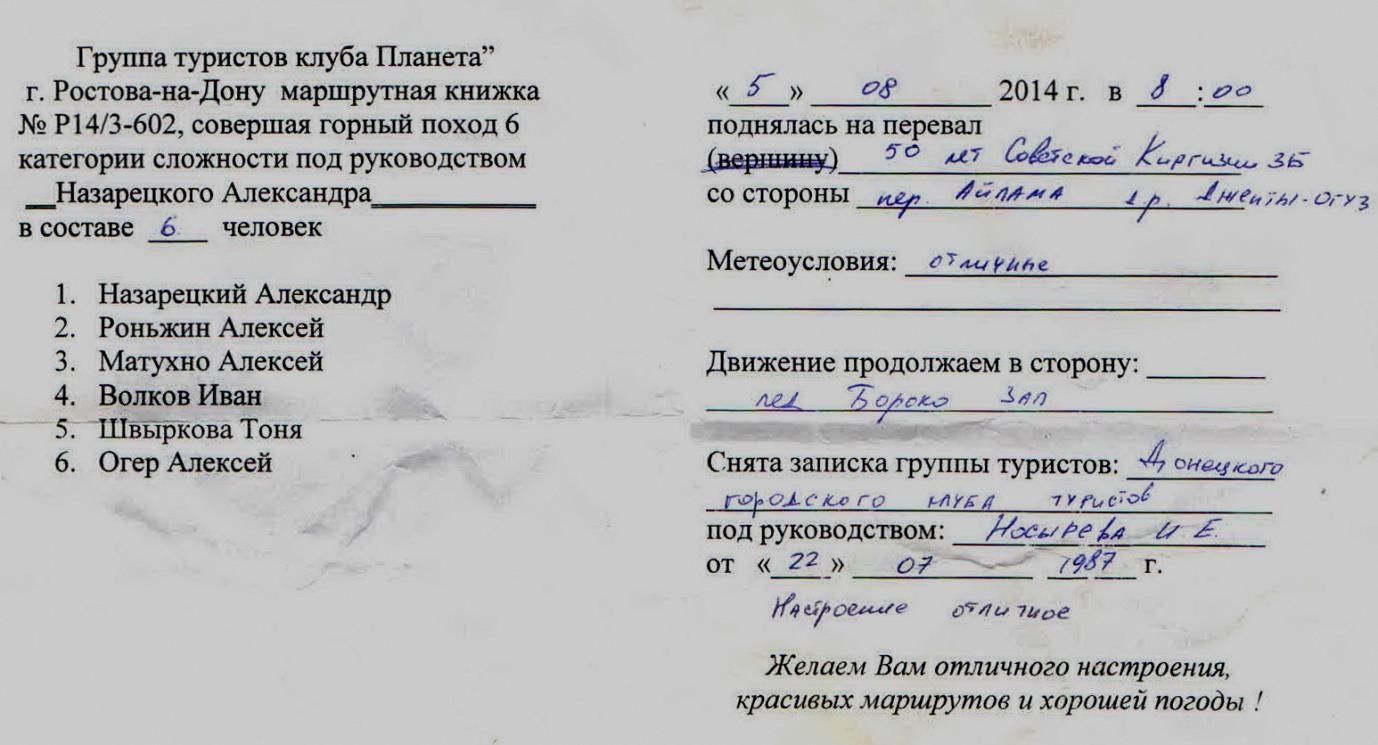 Группа туристов клуба Планета”
г. Ростова-на-Дону маршрутная книжка
№ Р14/3-602, совершая горный поход 6
категории сложности под руководством
__Назарецкого Александра____________
в составе 6 человек
1. Назарецкий Александр
2. Роньжин Алексей
3. Матухно Алексей
4. Волков Иван
5. Швыркова Тоня
6. Огер Алексей
« 5 » 08 2014 г. в 8 : 00
поднялась на перевал
(вершину) 50 лет Советской Киргизии 3Б
со стороны пер. Айлама д.р. Джеты-Огуз
Метеоусловия: отличные
Движение продолжаем в сторону:
лед Борско Зап
Снята записка группы туристов: Донецкого
городского клуба туристов
под руководством: Носырева И. Е.
от « 22 » 07 1987 г.
Настроение отличное
Желаем Вам отличного настроения,
красивых маршрутов и хорошей погоды !